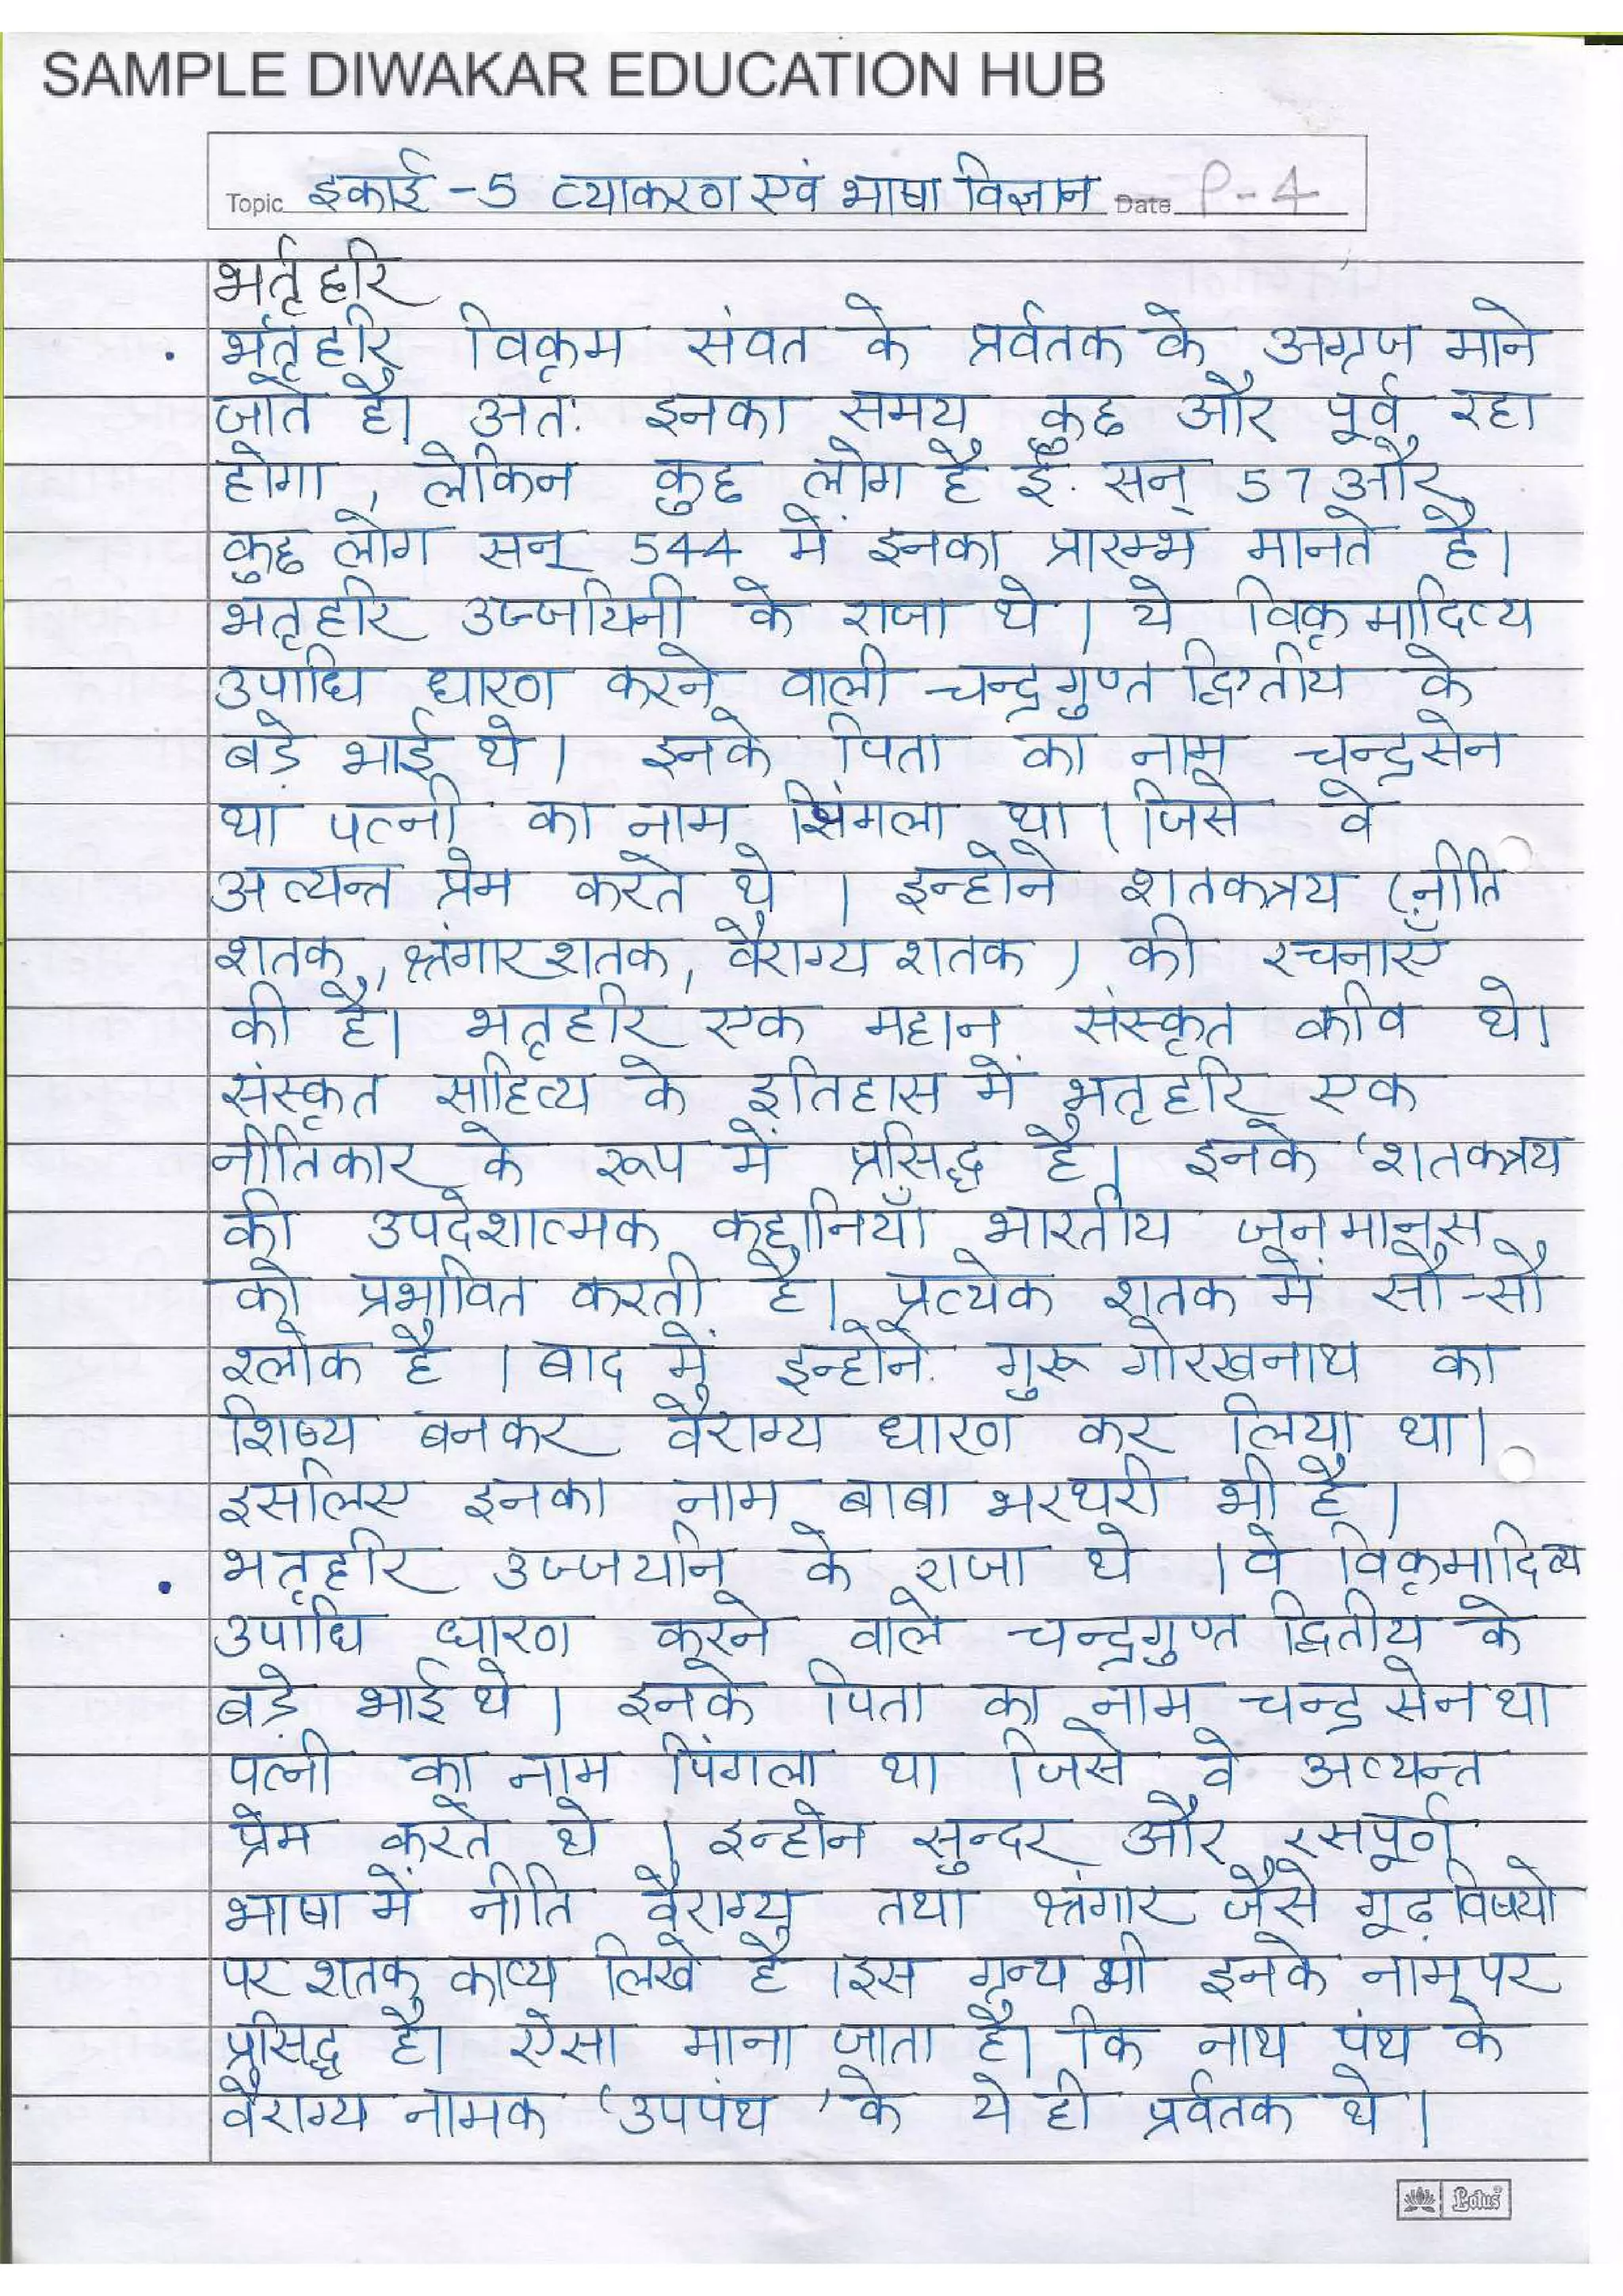 SAMPLE DIWAKAR EDUCATION HUB
Topic इकाई -5 व्याकरण एवं भाषा विज्ञान Date P-4
भर्तृहरि
• भर्तृहरि विक्रम संवत के प्रर्वतक के अग्रज माने
जाते है। अतः इनका समय कुछ और पूर्व रहा
होगा , लेकिन कुछ लोग है ई. सन् 57 और
कुछ लोग सन् 544 में इनका प्रारम्भ मानते है।
भतृहरि उज्जयिनी के राजा थे । ये विक्रमादित्य
उपाधि धारण करने वाली चन्द्रगुप्त द्वितीय के
बड़े भाई थे । इनके पिता का नाम चन्द्रसेन
था पत्नी का नाम सिंगला था । जिसे वे
अत्यन्त प्रेम करते थे । इन्होने शतकत्रय (नीति
शतक, श्रंगार शतक, वैराग्य शतक ) की रचनाएँ
की है। भतृहरि एक महान संस्कृत कवि थे।
संस्कृत साहित्य के इतिहास में भतृहरि एक
नीतिकार के रूप में प्रसिद्ध है। इनके 'शतकत्रय
की उपदेशात्मक कहानियाँ भारतीय जनमानस
को प्रभावित करती है। प्रत्येक शतक में सौ-सौ
श्लोक है । बाद में इन्होने गुरू गोरखनाथ का
शिष्य बनकर वैराग्य धारण कर लिया था।
इसलिए इनका नाम बाबा भरथरी भी है ।
• भतृहरि उज्जयनि के राजा थे । वे विक्रमादित्य
उपाधि धारण करने वाले चन्द्रगुप्त द्वितीय के
बड़े भाई थे । इनके पिता का नाम चन्द्र सेन था
पत्नी का नाम पिंगला था जिसे वे अत्यन्त
प्रेम करते थे । इन्होने सुन्दर और रसपूर्ण
भाषा में नीति वैराग्य तथा श्रंगार जैसे गूढ़ विषयो
पर शतक काव्य लिखे है । इस ग्रन्थ भी इनके नाम पर
प्रसिद्ध है। ऐसा माना जाता है। कि नाथ पंथ के
वैराग्य नामक 'उपपंथ ' के ये ही प्रर्वतक थे ।
Lotus